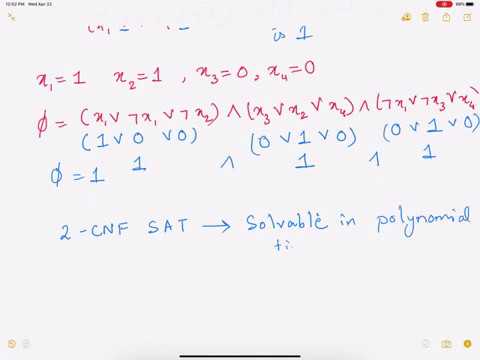 12:02 PM Wed Apr 22
is 1
x₁ = 1 x₂ = 1 , x₃ = 0 , x₄ = 0
ϕ = (x₁ ∨ ¬x₁ ∨ ¬x₂) ∧ (x₃ ∨ x₂ ∨ x₄) ∧ (¬x₁ ∨ ¬x₃ ∨ x₄)
(1 ∨ 0 ∨ 0) (0 ∨ 1 ∨ 0) (0 ∨ 1 ∨ 0)
ϕ = 1 1 ∧ 1 ∧ 1
2-CNF SAT → Solvable in polynomial
ti